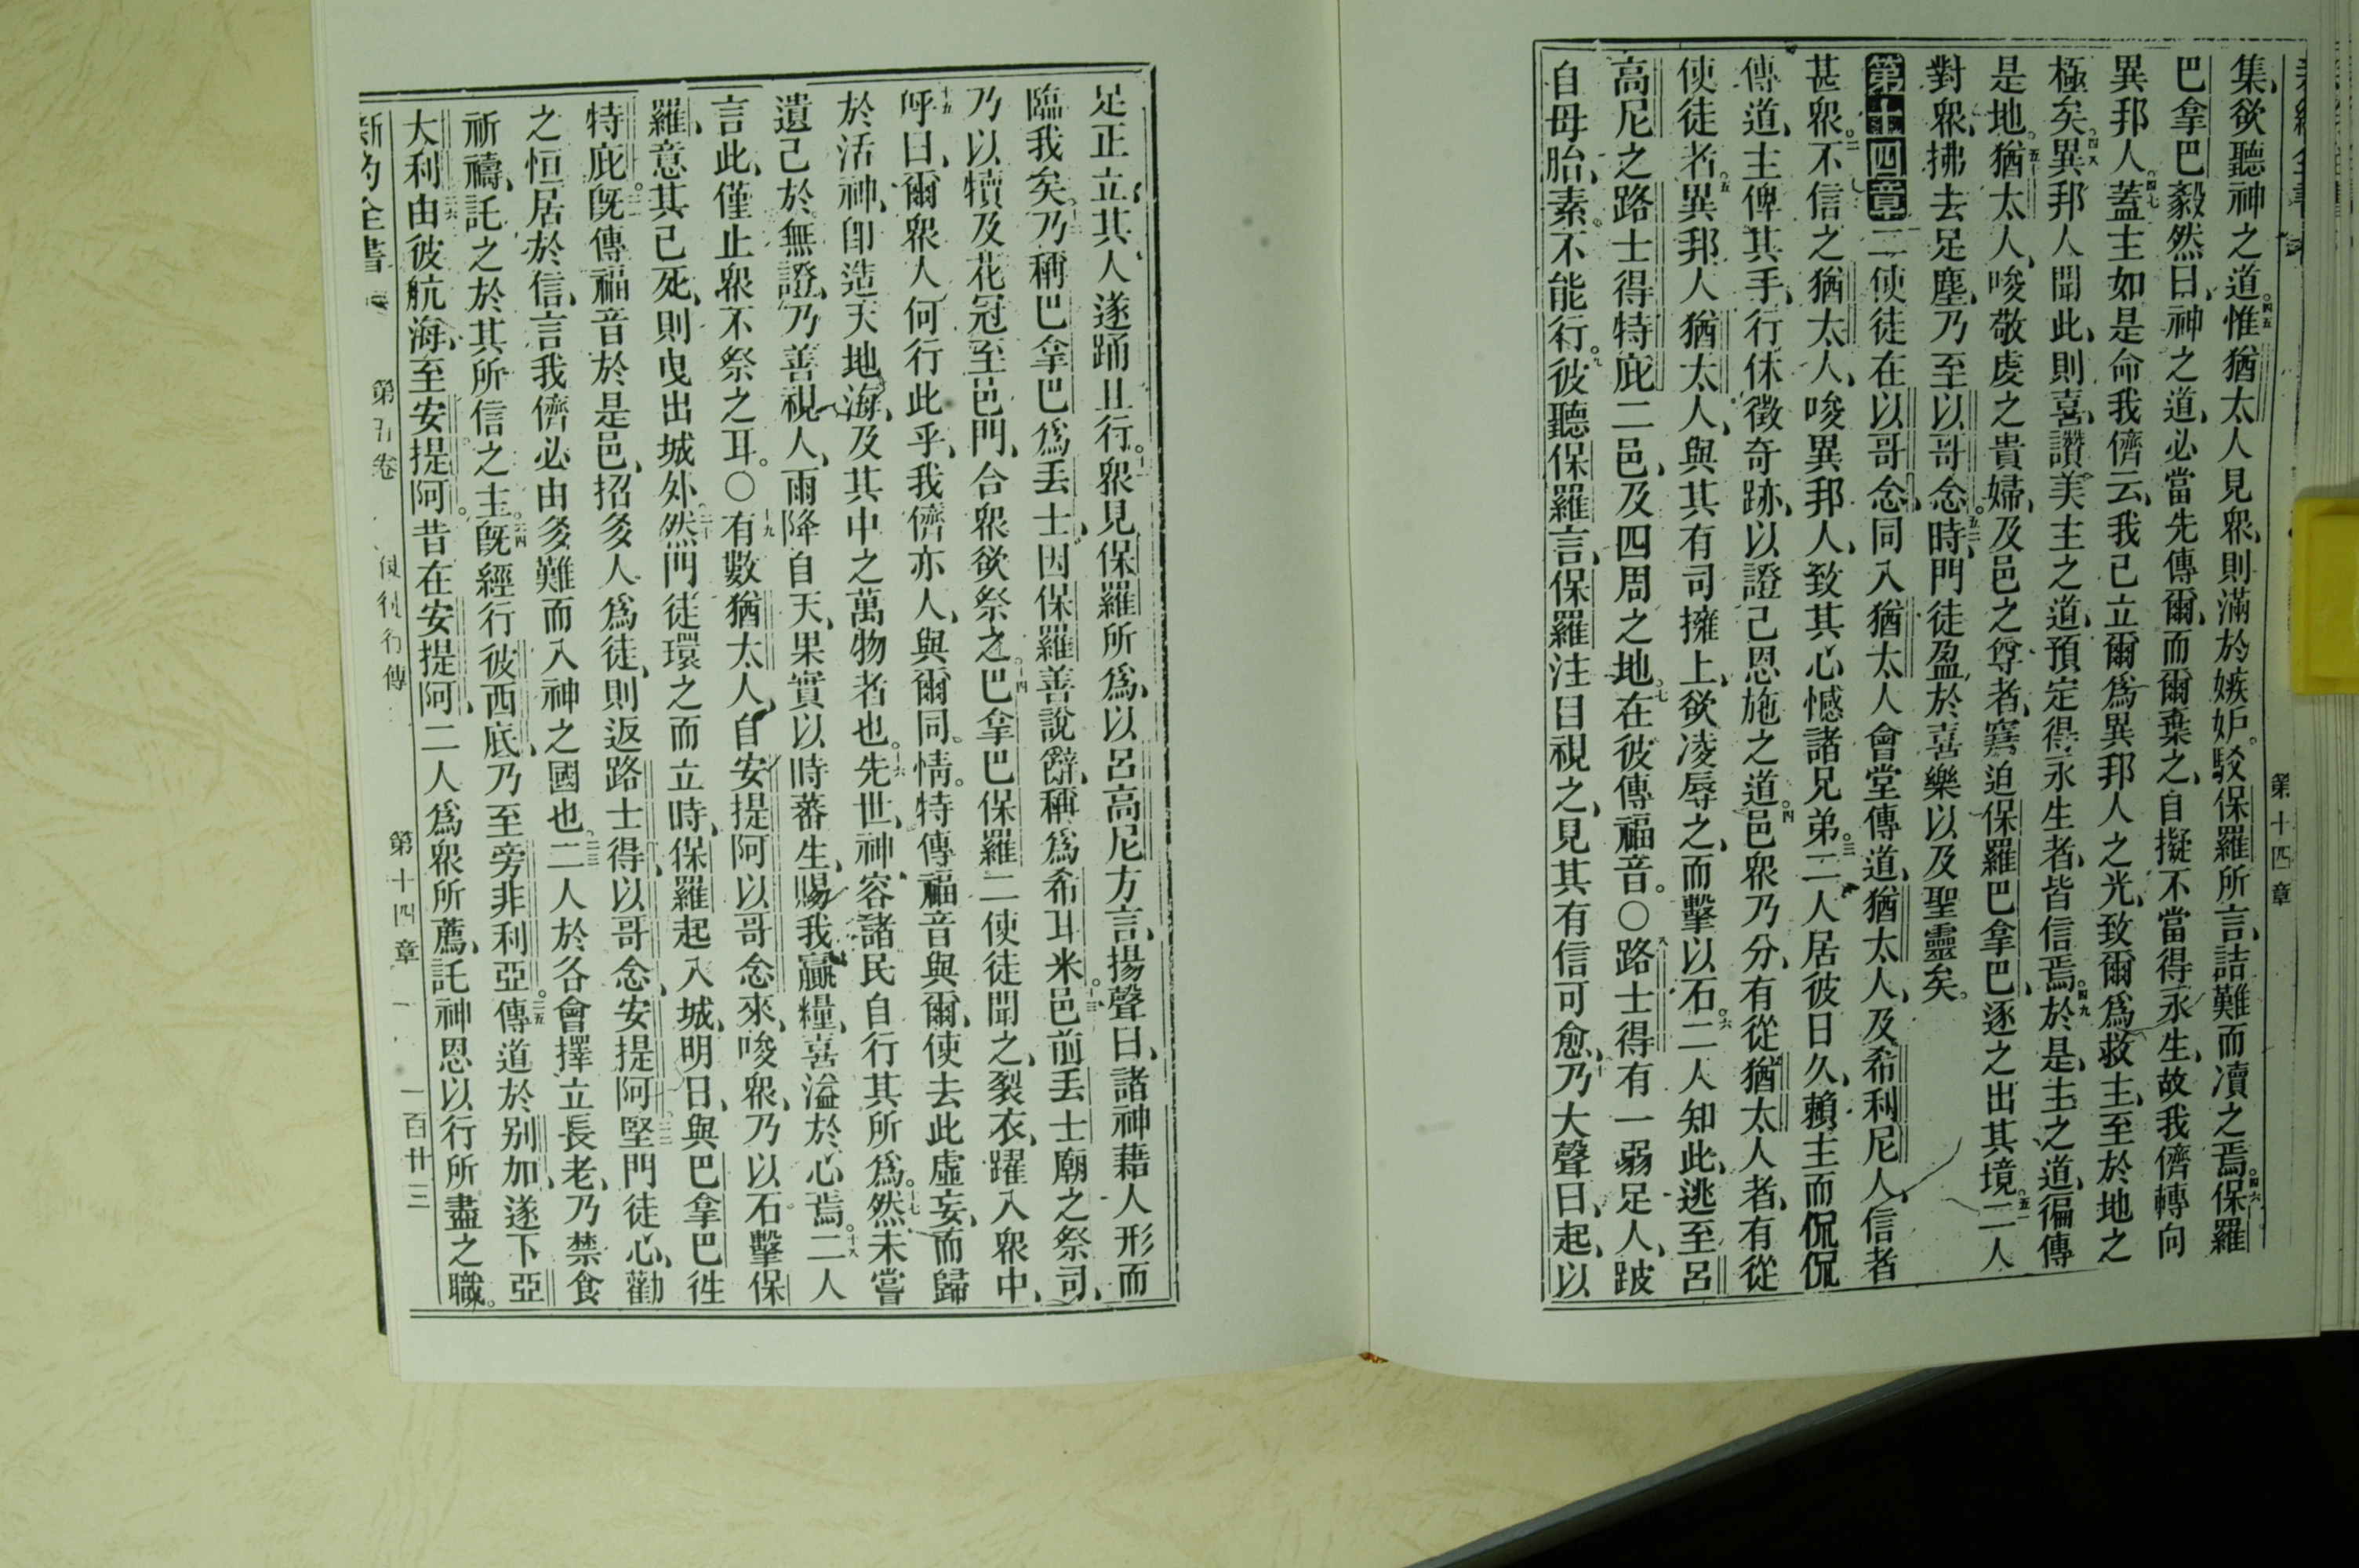 第十四章
集欲聽神之道、四五惟猶太人見衆、則滿於嫉妒、駁保羅所言、詰難而凟之焉。四六保羅
巴拿巴毅然曰、神之道、必當先傳爾、而爾棄之、自擬不當得永生、故我儕轉向
異邦人、四七蓋主如是命我儕云、我已立爾爲異邦人之光、致爾爲救主、至於地之
極矣。四八異邦人聞此、則喜、讚美主之道、預定得永生者、皆信焉。四九於是、主之道、徧傳
是地。五十猶太人、唆敬虔之貴婦、及邑之尊者、窘迫保羅巴拿巴、逐之出其境。五一二人
對衆、拂去足塵、乃至以哥念。五二時、門徒盈於喜樂以及聖靈矣。
第十四章二使徒在以哥念、同入猶太人會堂傳道、猶太人、及希利尼人、信者
甚衆。二不信之猶太人、唆異邦人、致其心憾諸兄弟。三二人居彼日久、賴主而侃侃
傳道、主俾其手、行休徵奇跡、以證己恩施之道。四邑衆乃分、有從猶太人者、有從
使徒者。五異邦人猶太人、與其有司擁上、欲凌辱之、而擊以石。六二人知此、逃至呂
高尼之路士得特庇二邑、及四周之地。七在彼傳福音。〇八路士得有一弱足人、跛
自母胎、素不能行。九彼聽保羅言、保羅注目視之、見其有信可愈、十乃大聲曰、起、以
足正立、其人遂踊且行。十一衆見保羅所爲、以呂高尼方言、揚聲曰、諸神藉人形而
臨我矣。十二乃稱巴拿巴爲丟士、因保羅善說辭、稱爲希耳米。十三邑前丟士廟之祭司、
乃以犢及花冠至邑門、合衆欲祭之。十四巴拿巴保羅二使徒聞之、裂衣、躍入衆中、
十五呼曰、爾衆人何行此乎、我儕亦人、與爾同情。特傳福音與爾、使去此虛妄、而歸
於活神、卽造天地海、及其中之萬物者也。十六先世、神容諸民自行其所爲。十七然未嘗
遺己於無證、乃善視人、雨降自天、果實以時蕃生、賜我贏糧、喜溢於心焉。十八二人
言此、僅止衆不祭之耳。〇十九有數猶太人、自安提阿以哥念來、唆衆、乃以石擊保
羅、意其已死、則曳出城外。二十然門徒環之而立時、保羅起入城、明日、與巴拿巴徃
特庇。二一旣傳福音於是邑、招多人爲徒、則返路士得、以哥念、安提阿。二二堅門徒心、勸
之恒居於信、言我儕必由多難而入神之國也。二三二人於各會擇立長老、乃禁食
祈禱、託之於其所信之主。二四旣經行彼西底、乃至旁非利亞。二五傳道於别加、遂下亞
大利、二六由彼航海、至安提阿。昔在安提阿、二人爲衆所薦、託神恩以行所盡之職。
新約全書 第五卷 使徒行傳 第十四章 一百廿三